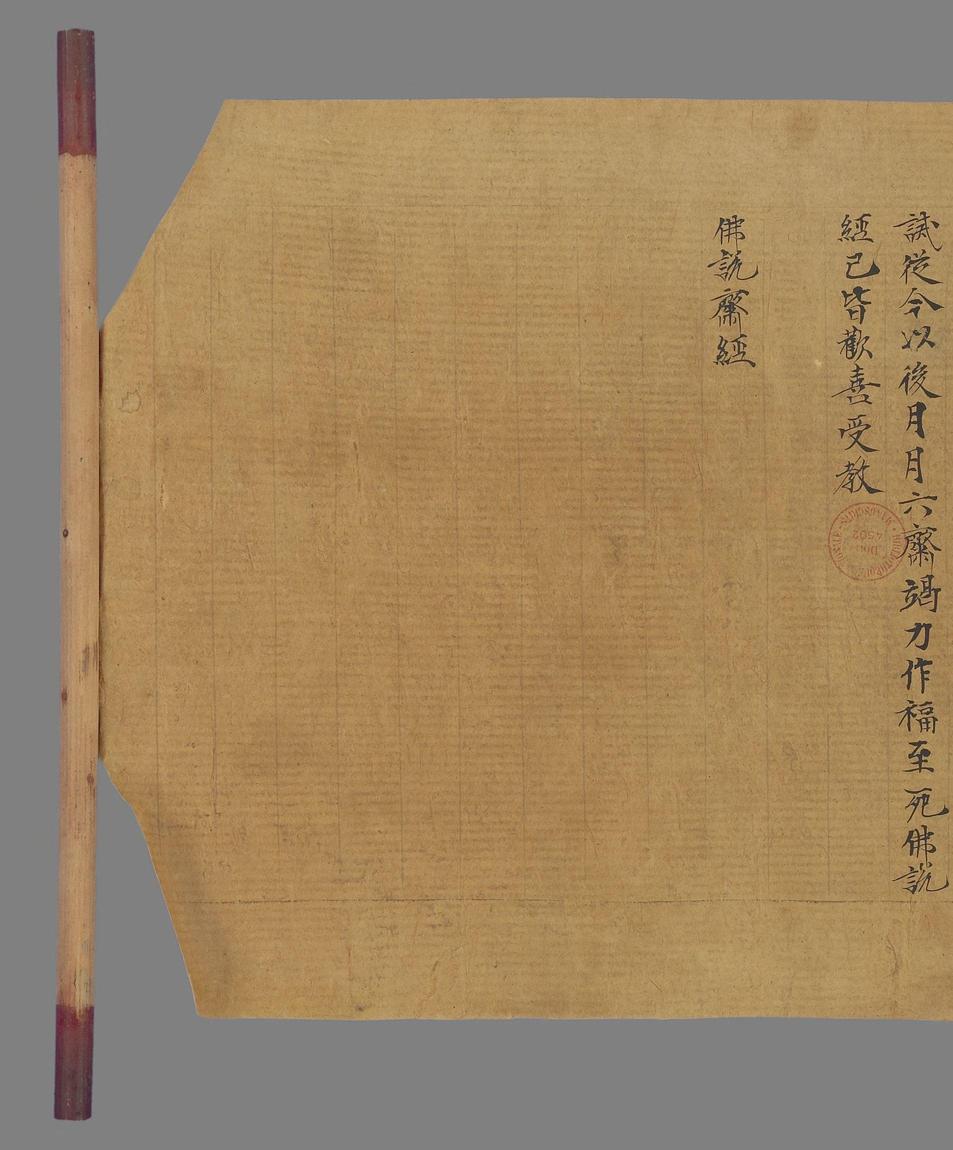 誡從今以後月月六齋竭力作福至死佛說
經已皆歡喜受教
佛說齋經
4502